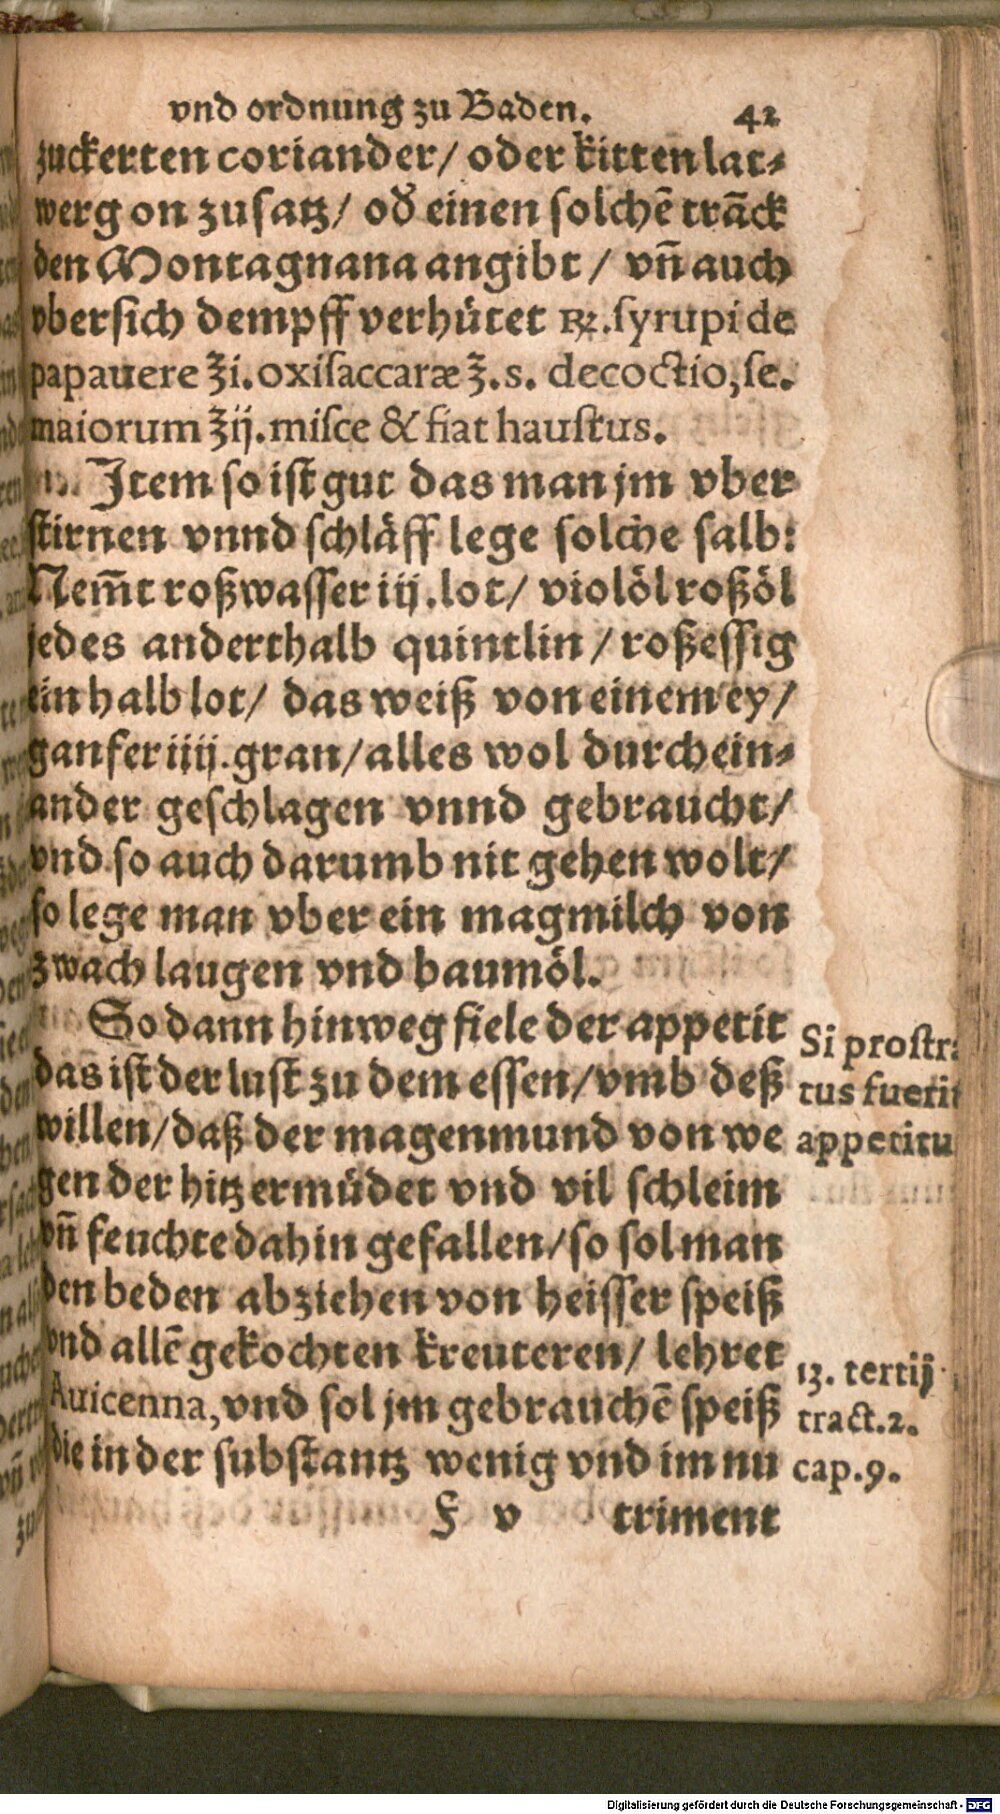 vnd ordnung zu Baden. 42
zuckerten coriander/ oder kitten lat⸗
werg on zusatz/ oď einen solchē trāck
den Montagnana angibt / vñ auch
vbersich dempff verhütet ꝶ. ſyrupi de
papauere ℥i. oxiſaccaræ ℥.s. decoctio, ſe.
maiorum ℥ij. miſce & fiat hauſtus.
Item so ist gut das man jm vber
stirnen vnnd schläff lege solche salb:
Nem̄t roßwasser iij. lot/ violöl roßöl
jedes anderthalb quintlin / roßessig
ein halb lot/ das weiß von einem ey/
ganfer iiij. gran/ alles wol durchein⸗
ander geschlagen vnnd gebraucht/
vnd so auch darumb nit gehen wolt/
so lege man vber ein magmilch von
zwach laugen vnd baumöl.
So dann hinweg fiele der appetit
das ist der lust zu dem essen/ vmb deß
willen/ daß der magenmund von we
gen der hitz ermüdet vnd vil schleim
vñ feuchte dahin gefallen/ so sol man
den beden abziehen von heisser speiß
vnd allē gekochten kreuteren/ lehret
Auicenna, vnd sol jm gebrauchē speiß
die in der substantz wenig vnd im nu
F v triment
Si proſtra
tus fuerit
appetitu
13. tertij
tract. 2.
cap. 9.
Digitalisierung gefördert durch die Deutsche Forschungsgemeinschaft - DFG